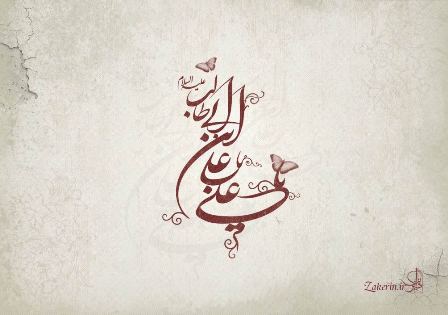 یا علی
یا علی
ابن
ابی طالب
علیه السلام
Zakerin.ir